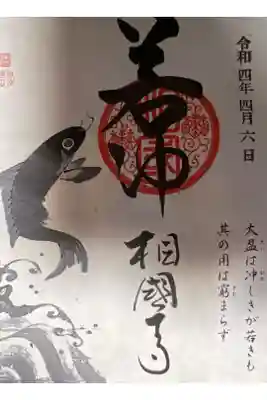 令和四年四月六日
若冲
相國寺
大盈は冲しきが若きも
其の用は窮まらず